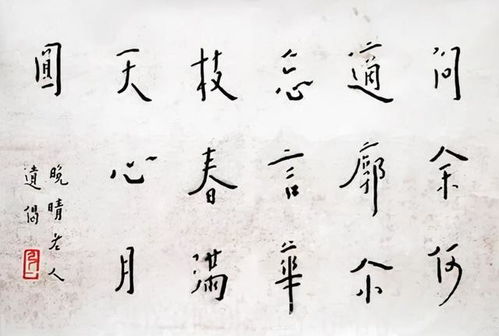 問余何
適廓尒
忘言華
枝春滿
天心月
圓
晚晴老人
遺偈